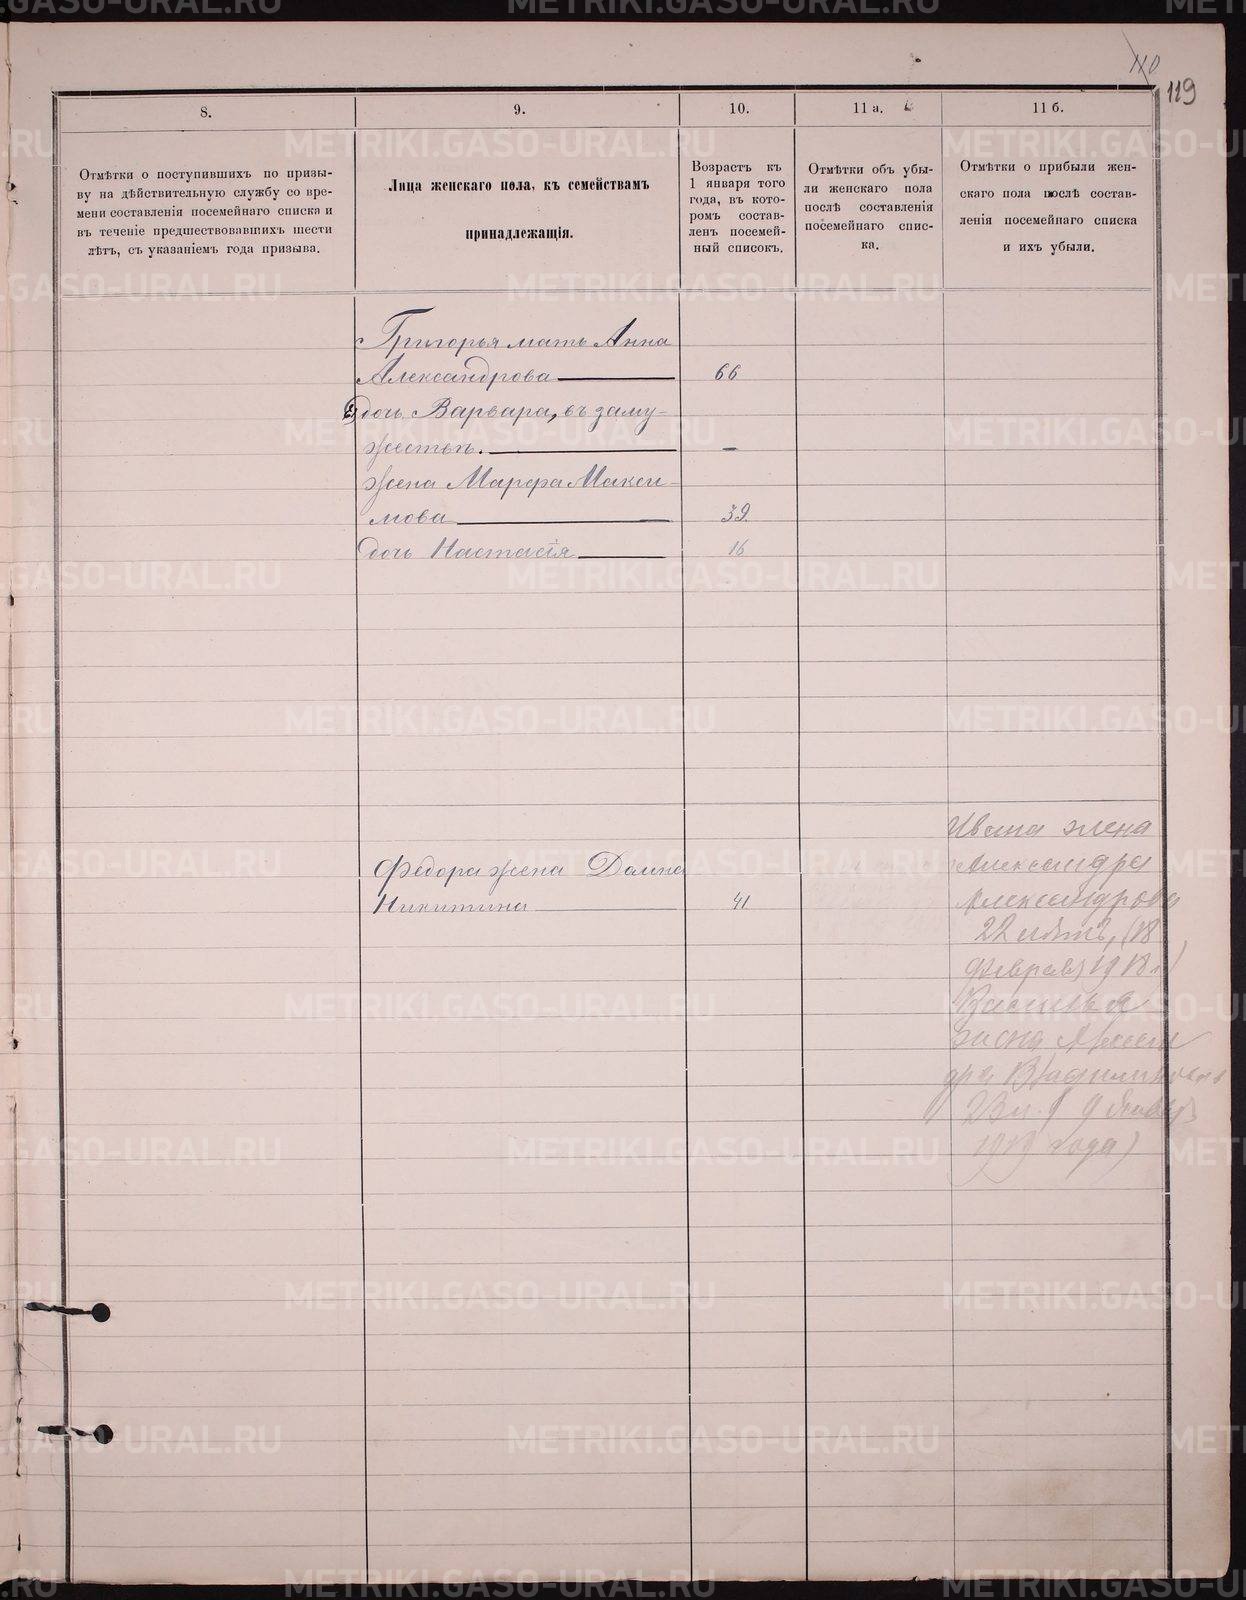 110
119
8.
9.
10.
11 а.
11 б.
Отмѣтки о поступившихъ по призы-
ву на дѣйствительную службу со вре-
мени составленія посемейнаго списка и
въ теченіе предшествовавшихъ шести
лѣтъ, съ указаніемъ года призыва.
Лица женскаго пола, къ семействамъ
принадлежащія.
Возрастъ къ
1 января того
года, въ кото-
ромъ состав-
ленъ посемей-
ный списокъ.
Отмѣтки объ убы-
ли женскаго пола
послѣ составленія
посемейнаго спис-
ка.
Отмѣтки о прибыли жен-
скаго пола послѣ состав-
ленія посемейнаго списка
и ихъ убыли.
Григорья мать Анна
Александрова 66
дочь Варвара, въ заму-
жествѣ. —
жена Марфа Макси-
мова 39.
дочь Настасія 16
Федора жена Домна
Никитина 41
Ивана жена
Александра
Александрова
22 лѣтъ, (18
Феврал) 1918 г)
Василья
жена
1919 года)
METRIKI.GASO-URAL.RU